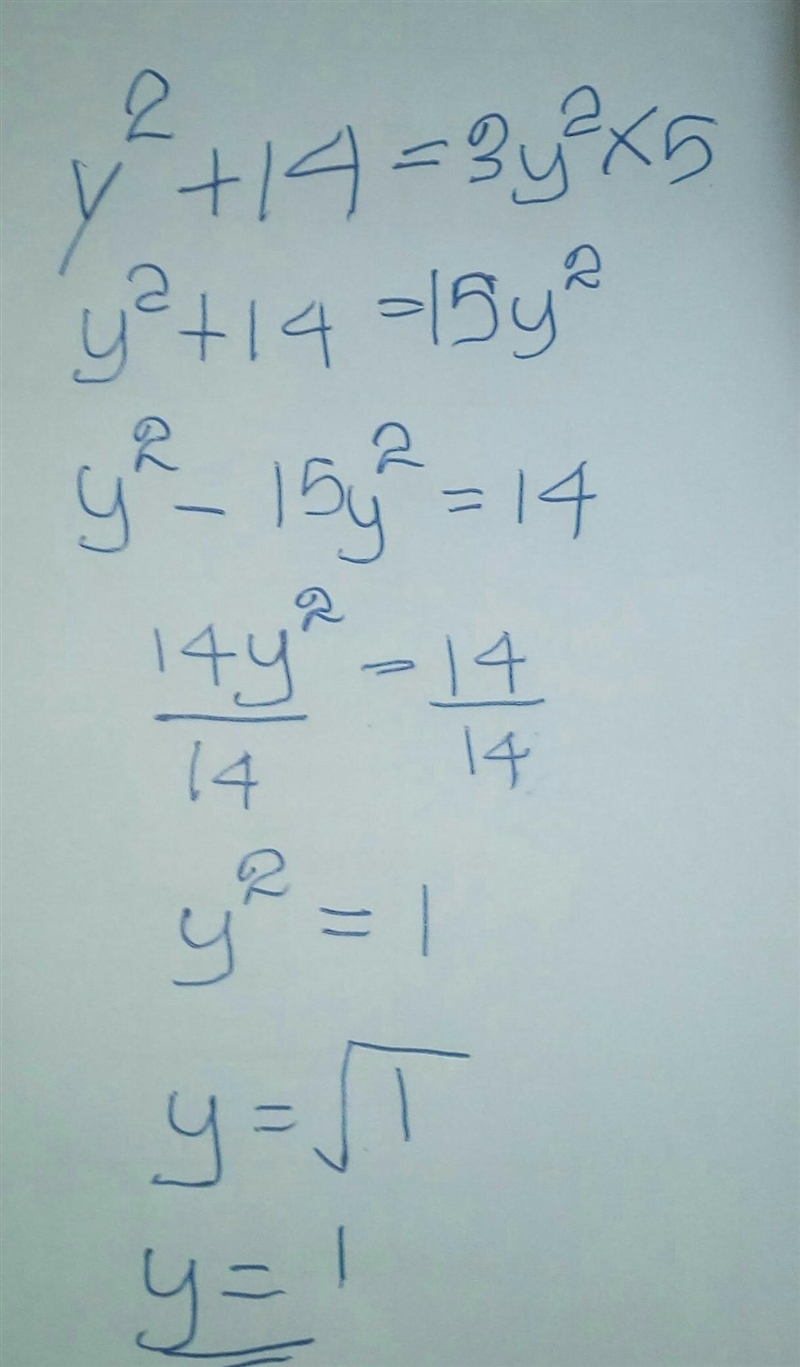 y² + 14 = 3y² × 5
y² + 14 = 15y²
y² - 15y² = 14
14y²/14 = 14/14
y² = 1
y = √1
y = 1